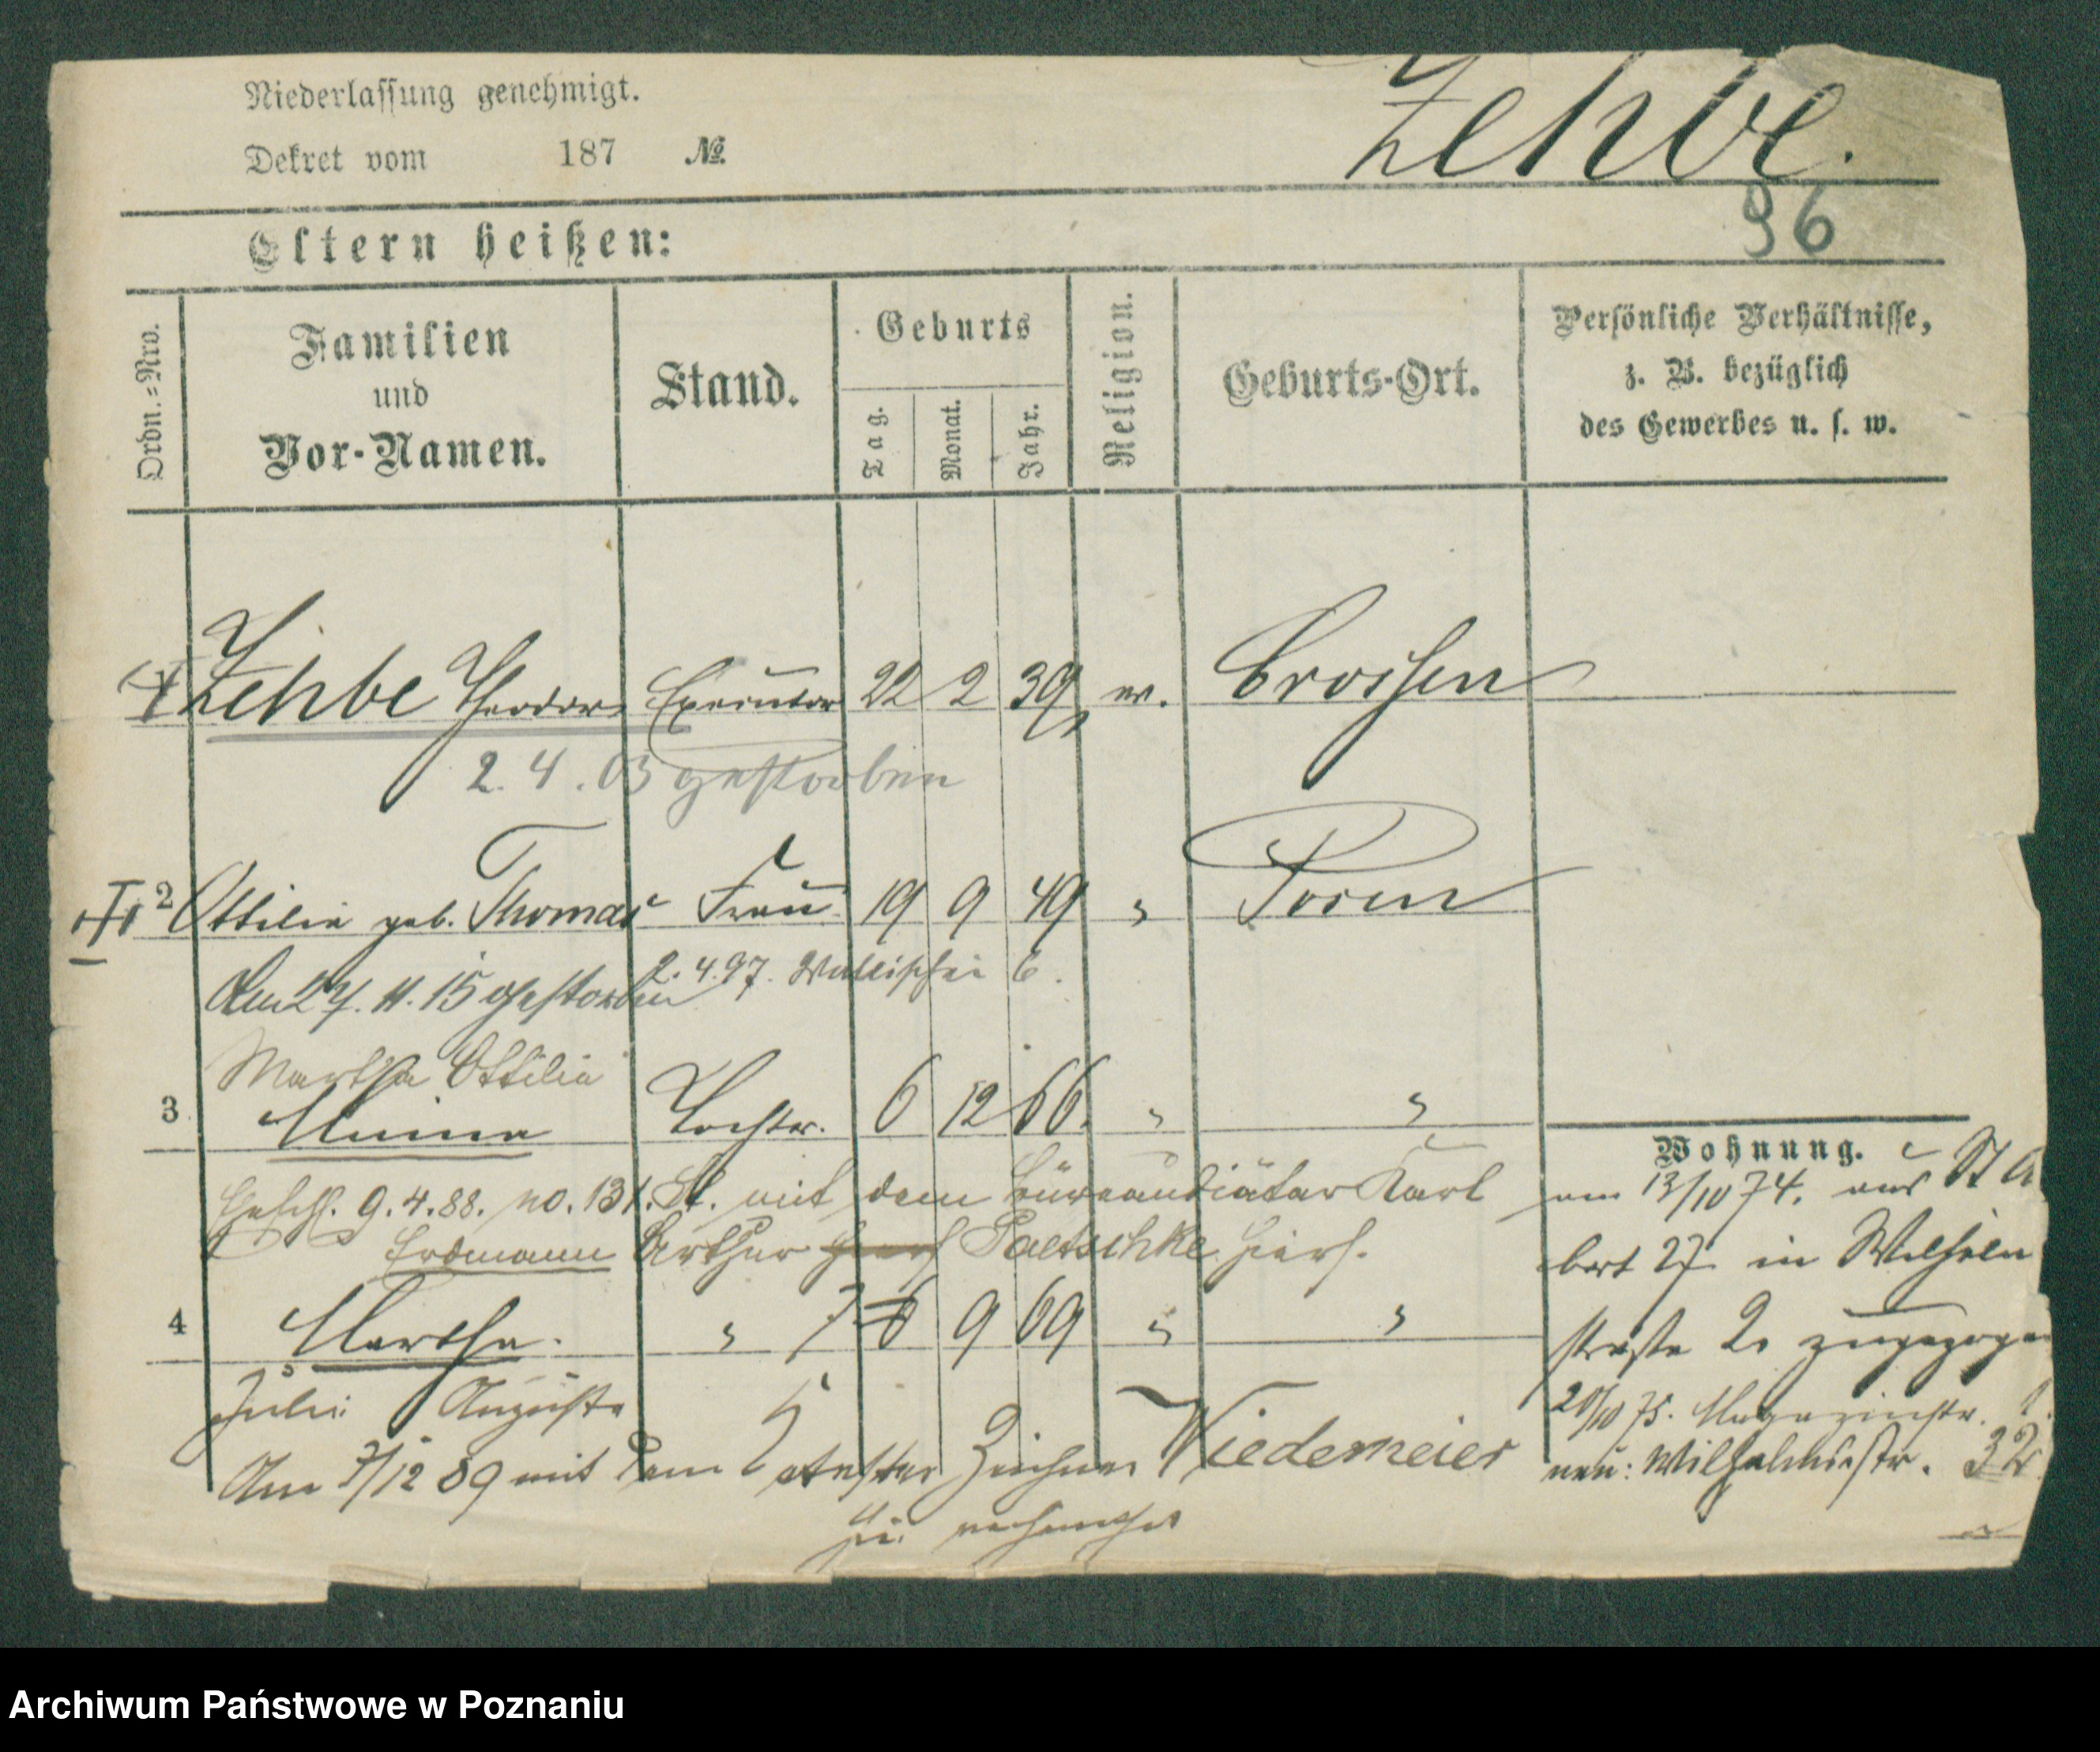 Niederlassung genehmigt.
Dekret vom 187 №
Zehbe.
96
Eltern heißen:
Ordn.-Nro.
Familien
und
Vor-Namen.
Stand.
Geburts
Tag.
Monat.
Jahr.
Religion.
Geburts-Ort.
Persönliche Verhältnisse,
z. B. bezüglich
des Gewerbes u. s. w.
Zehbe Theodor Executor 22 2 39 ev. Crossen
2. 4. 03 gestorben
2 Ottilie geb. Thomas Frau 19 9 49 " Posen
2. 4. 97. Wallischei 6.
Am 27. 11. 15 gestorben
Martha Ottilie
3 Minna Tochter. 6 12 66. " "
9. 4. 88. no. 131. St. mit dem Büreaudiätar Karl
Erdmann Arthur Paetschke hiers.
4 Martha. " 7 6 9 69 " "
Julie Auguste
Am 7/12 89 mit dem Zeichner Wiedemeier
hie verheirathet
Wohnung.
am 13/10 74. aus St A
bert 27 in Wilhelm
straße 2. zugezogen
20/10 75. Magazinstr. 1.
neu: Wilhelmstr. 32
Archiwum Państwowe w Poznaniu